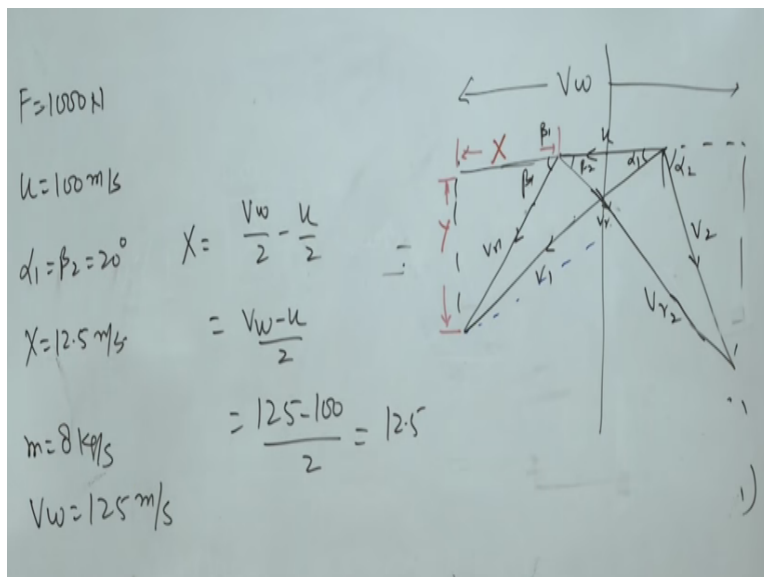 F=1000N
u=100m/s
α1=β2=20°
X=12.5 m/s
m=8 kg/s
Vw=125 m/s
X= Vw/2 - u/2
= Vw-u/2
= 125-100/2 = 12.5
Vw
X
β1
u
β1
β2
α1
α2
Y
Vr1
V1
Vr
V2
Vr2